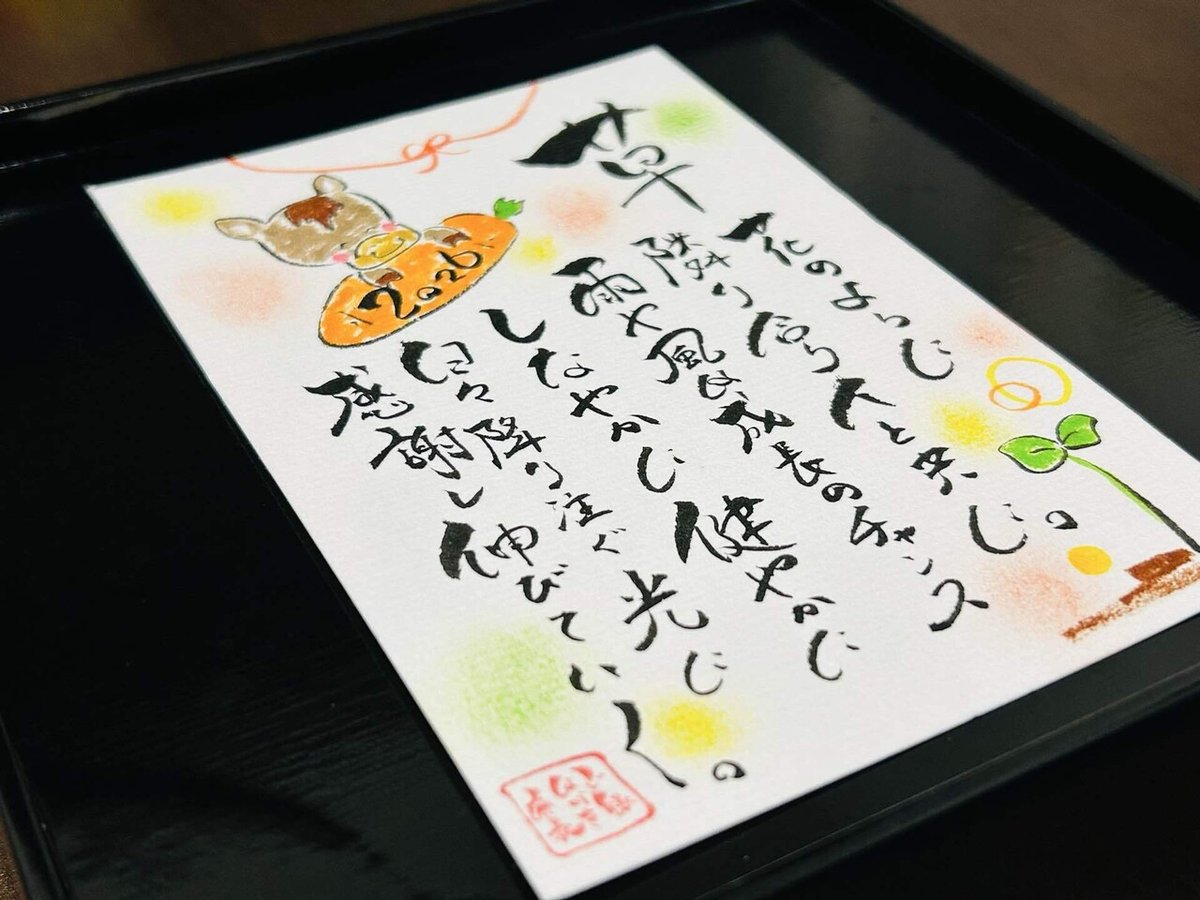 草
花のように
隣り合う人と共に。
雨や風は、成長のチャンス
しなやかに 健やかに
日々降り注ぐ光に
感謝し伸びていく。
2026